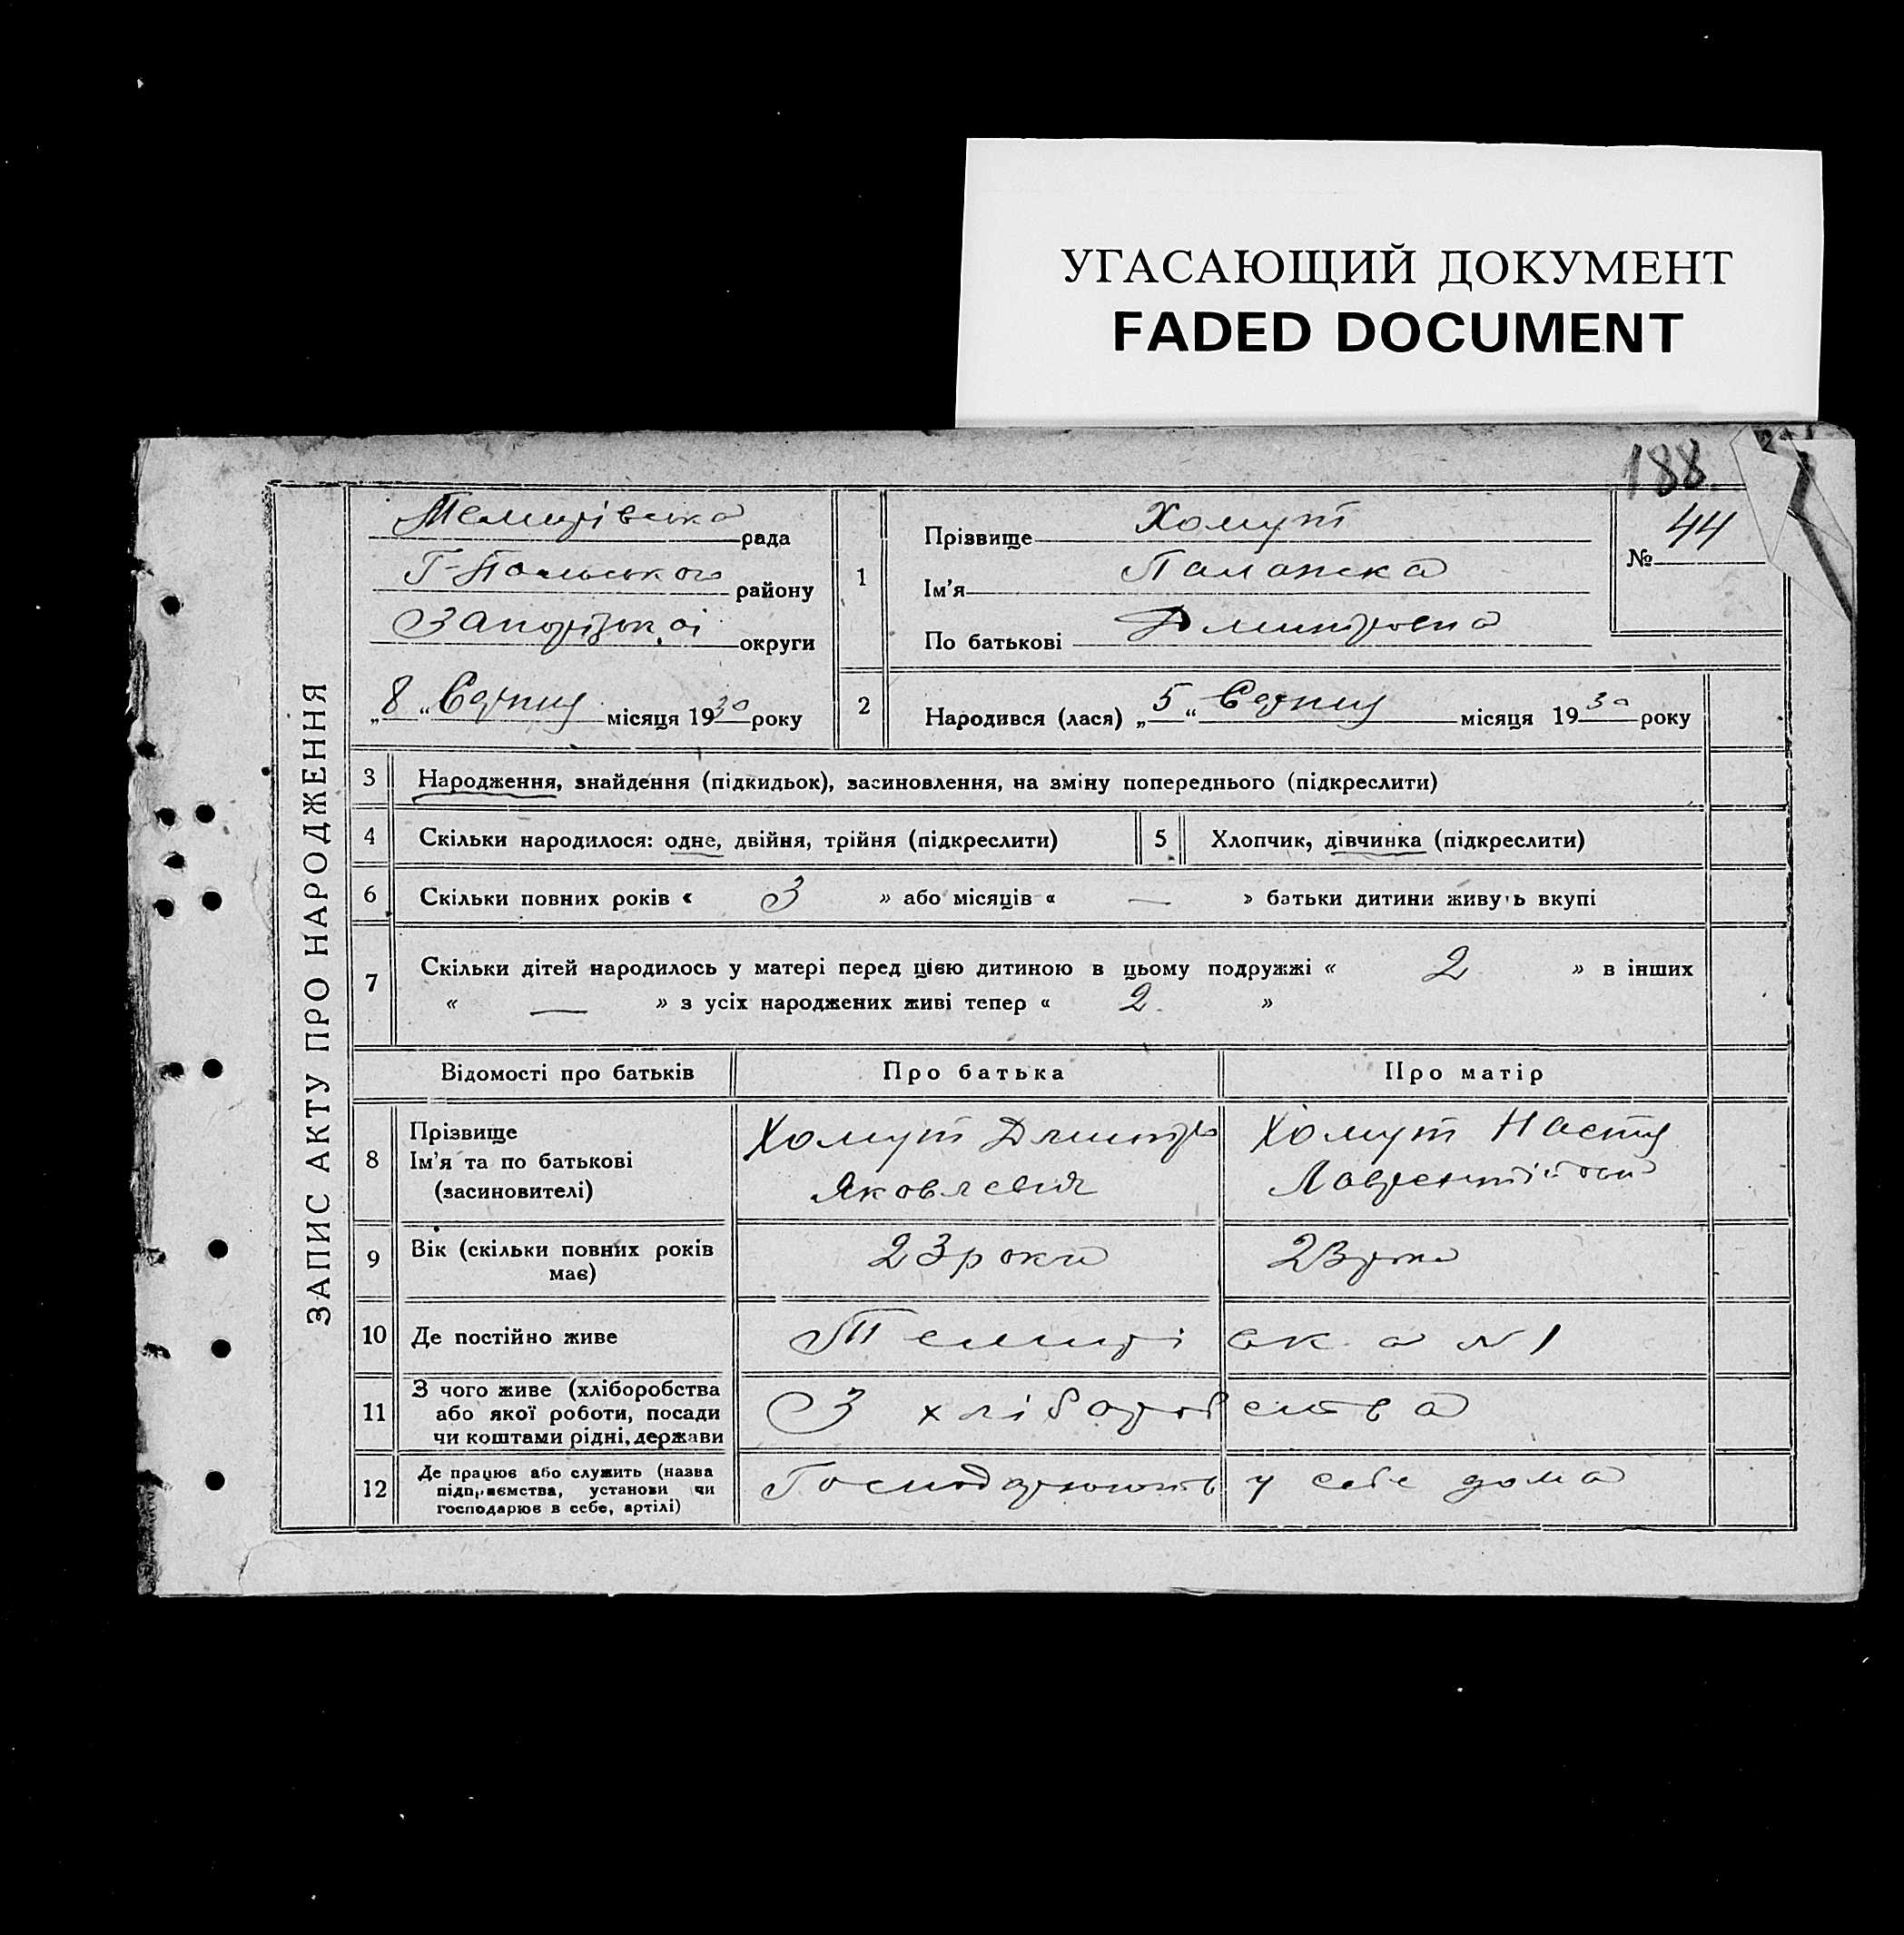 УГАСАЮЩИЙ ДОКУМЕНТ
FADED DOCUMENT
188.
ЗАПИС АКТУ ПРО НАРОДЖЕННЯ
Темирівська рада
Г-Пільського району
Запорізької округи
„8“ Серпня місяця 1930 року
1
Прізвище Хомут
Ім'я Палажка
По батькові Дмитровна
№ 44
2
Народився (лася) „5“ Серпня місяця 1930 року
3 Народження, знайдення (підкидьок), засиновлення, на зміну попереднього (підкреслити)
4 Скільки народилося: одне, двійня, трійня (підкреслити) 5 Хлопчик, дівчинка (підкреслити)
6 Скільки повних років « 3 » або місяців « — » батьки дитини живуть вкупі
7 Скільки дітей народилось у матері перед цією дитиною в цьому подружжі « 2 » в інших
« — » з усіх народжених живі тепер « 2 »
Відомості про батьків Про батька Про матір
8 Прізвище
Ім'я та по батькові
(засиновителі)
Хомут Дмитро
Яковлевич
Хомут Настя
9 Вік (скільки повних років
має)
23 роки
23 роки
10 Де постійно живе Темирівка №1
11 З чого живе (хліборобства
або якої роботи, посади
чи коштами рідні, держави
З хліборобства
12 Де працює або служить (назва
підприємства, установи чи
господарює в себе, артілі)
Господарюють у себе дома